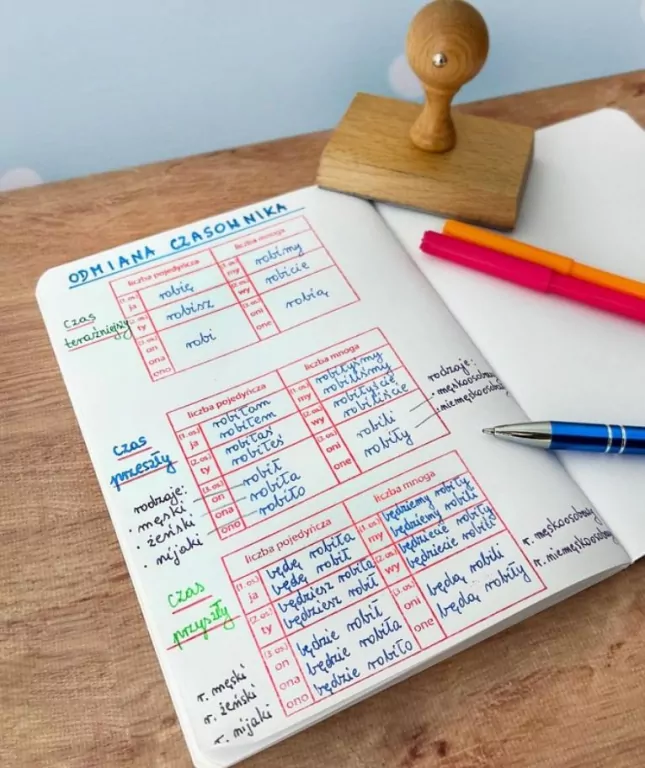 ODMIANA CZASOWNIKA
czas
teraźniejszy
liczba pojedyńcza
liczba mnoga
(1.os.) ja
robię
(1.os.) my
robimy
(2.os.) ty
robisz
(2.os.) wy
robicie
(3.os.)
on
ona
ono
robi
(3.os.)
oni
one
robią
czas
przeszły
liczba pojedyńcza
liczba mnoga
(1.os.) ja
robiłam
robiłem
(1.os.) my
robiłyśmy
robiliśmy
(2.os.) ty
robiłaś
robiłeś
(2.os.) wy
robiłyście
robiliście
(3.os.)
on
ona
ono
robił
robiła
robiło
(3.os.)
oni
one
robili
robiły
rodzaje:
• męski
• żeński
• nijaki
rodzaje:
• męskoosobowy
• niemęskoosob
czas
przyszły
liczba pojedyńcza
liczba mnoga
(1.os.) ja
będę robiła
będę robił
(1.os.) my
będziemy robiły
będziemy robili
(2.os.) ty
będziesz robiła
będziesz robił
(2.os.) wy
będziecie robiły
będziecie robili
(3.os.)
on
ona
ono
będzie robił
będzie robiła
będzie robiło
(3.os.)
oni
one
będą robili
będą robiły
r. męski
r. żeński
r. nijaki
r. męskoosobowy
r. niemęskoosobow